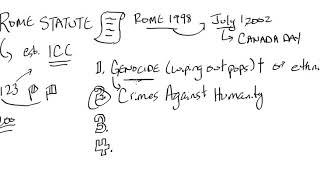 ROME STATUTE ROME 1998 July 1 2002
CANADA DAY
est. ICC
1. GENOCIDE (wiping out pops) † or ethn
123
2. Crimes Against Humanity
3.
4.